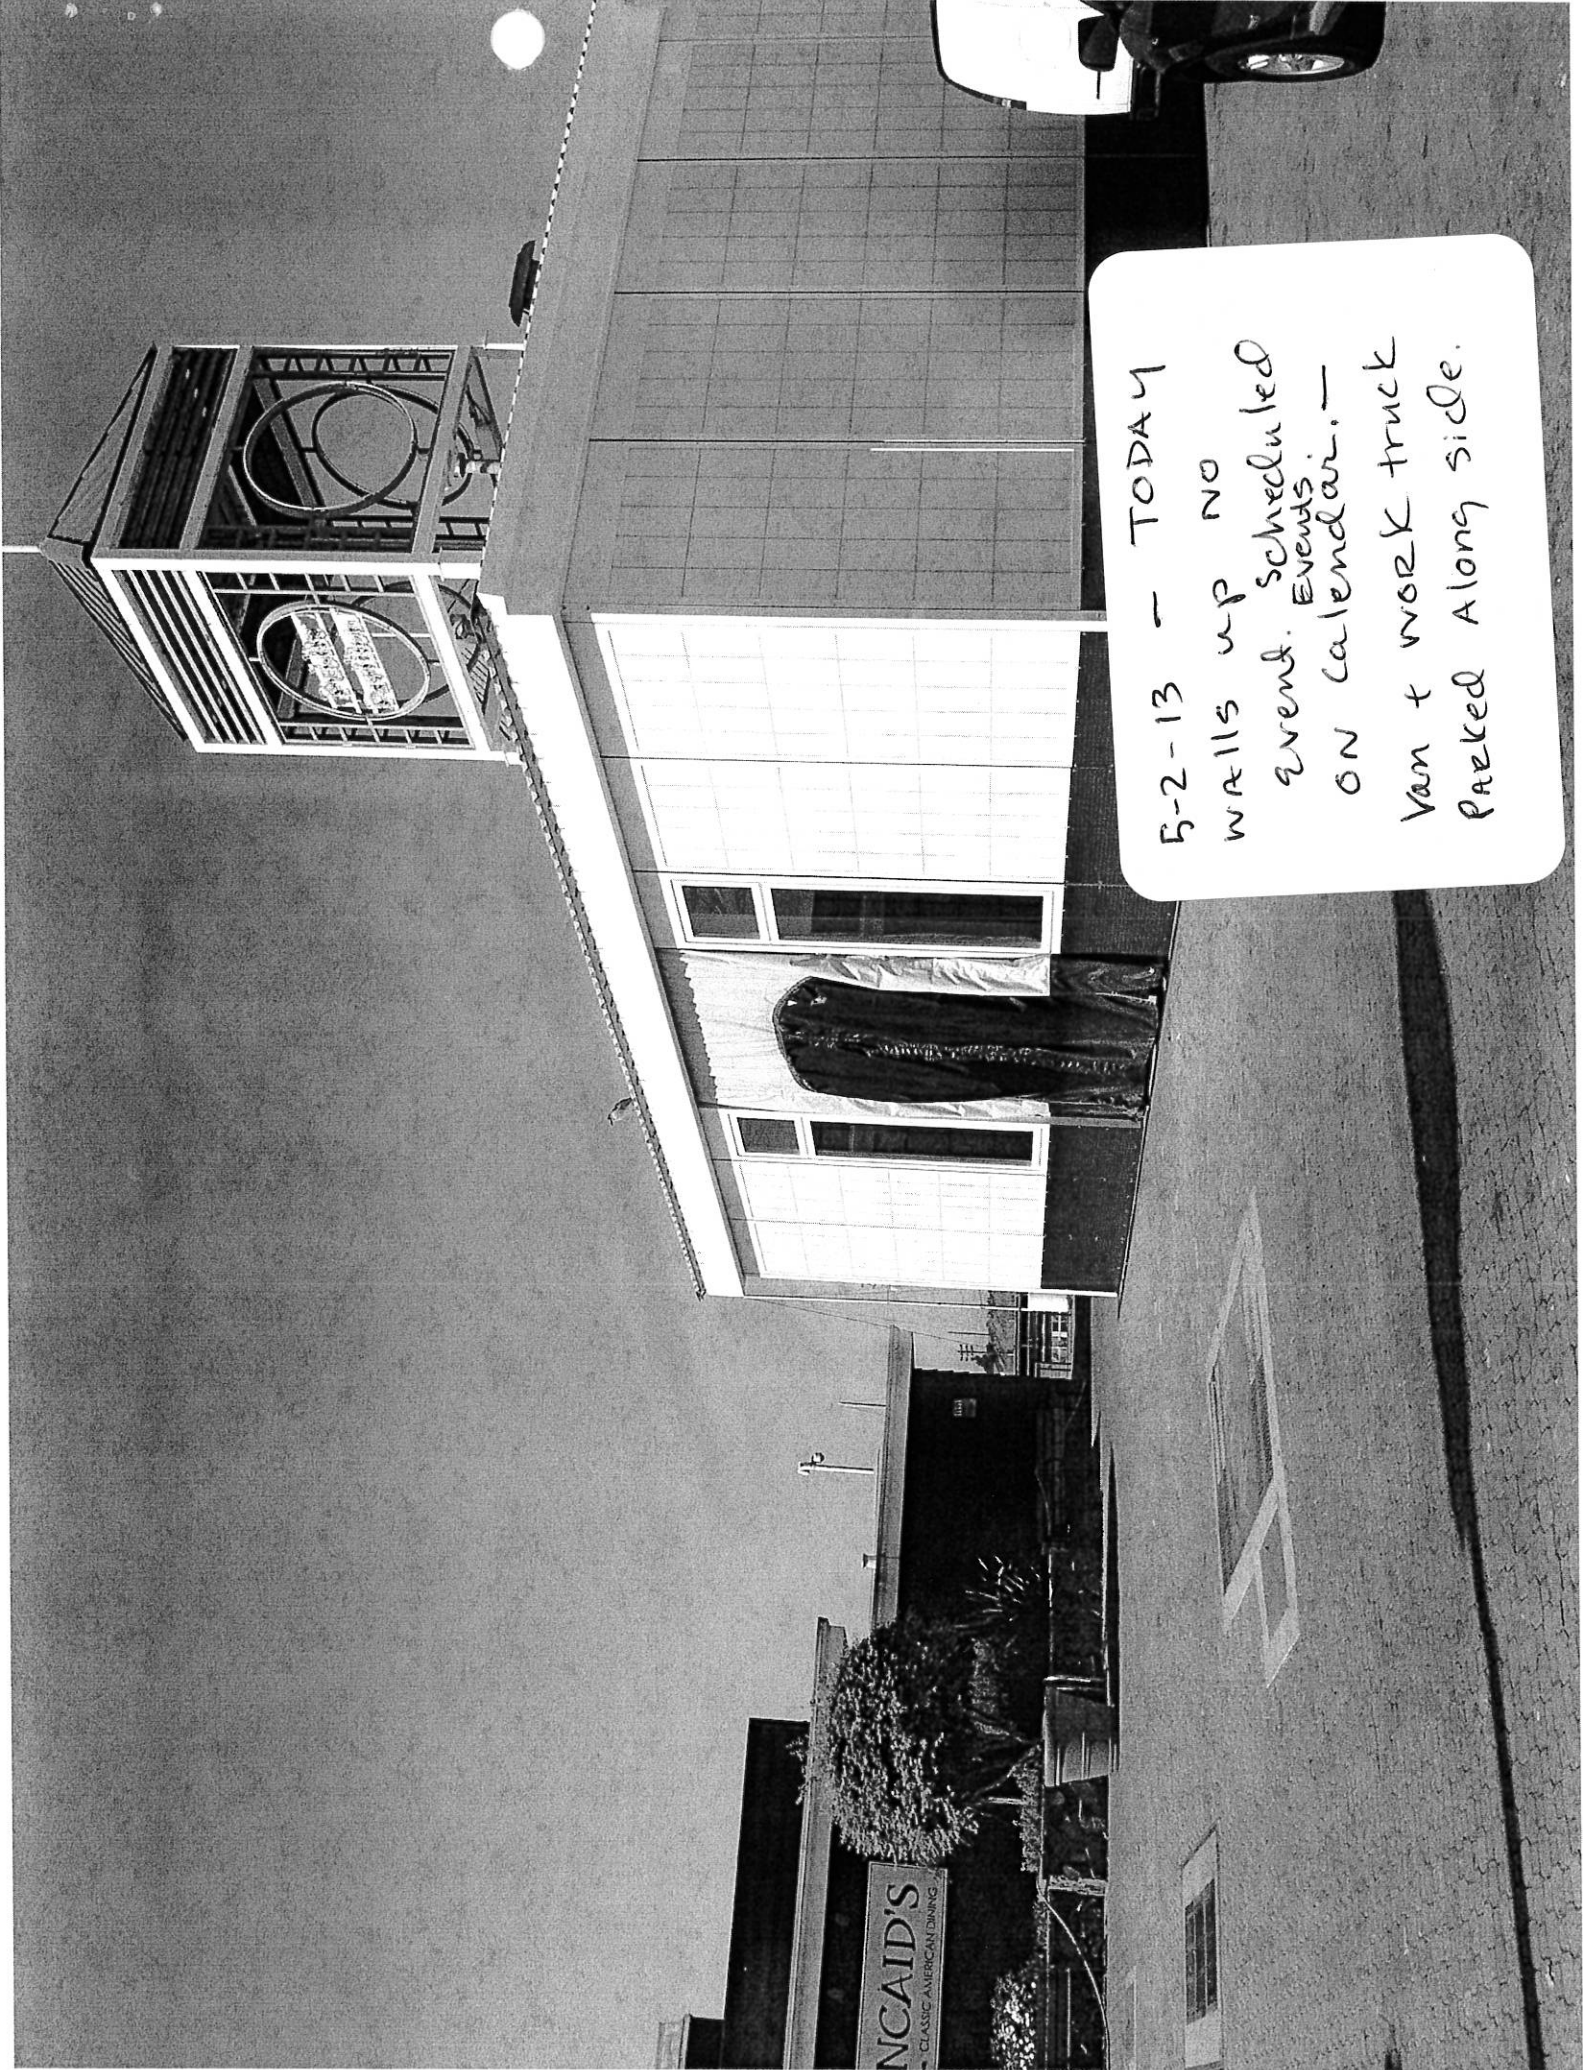 5-2-13 - TODAY
WALLS up NO
event. Scheduled
Events.
ON calendar. —
Van + WORK truck
PARKED Along side.
NCAID'S
CLASSIC AMERICAN DINING